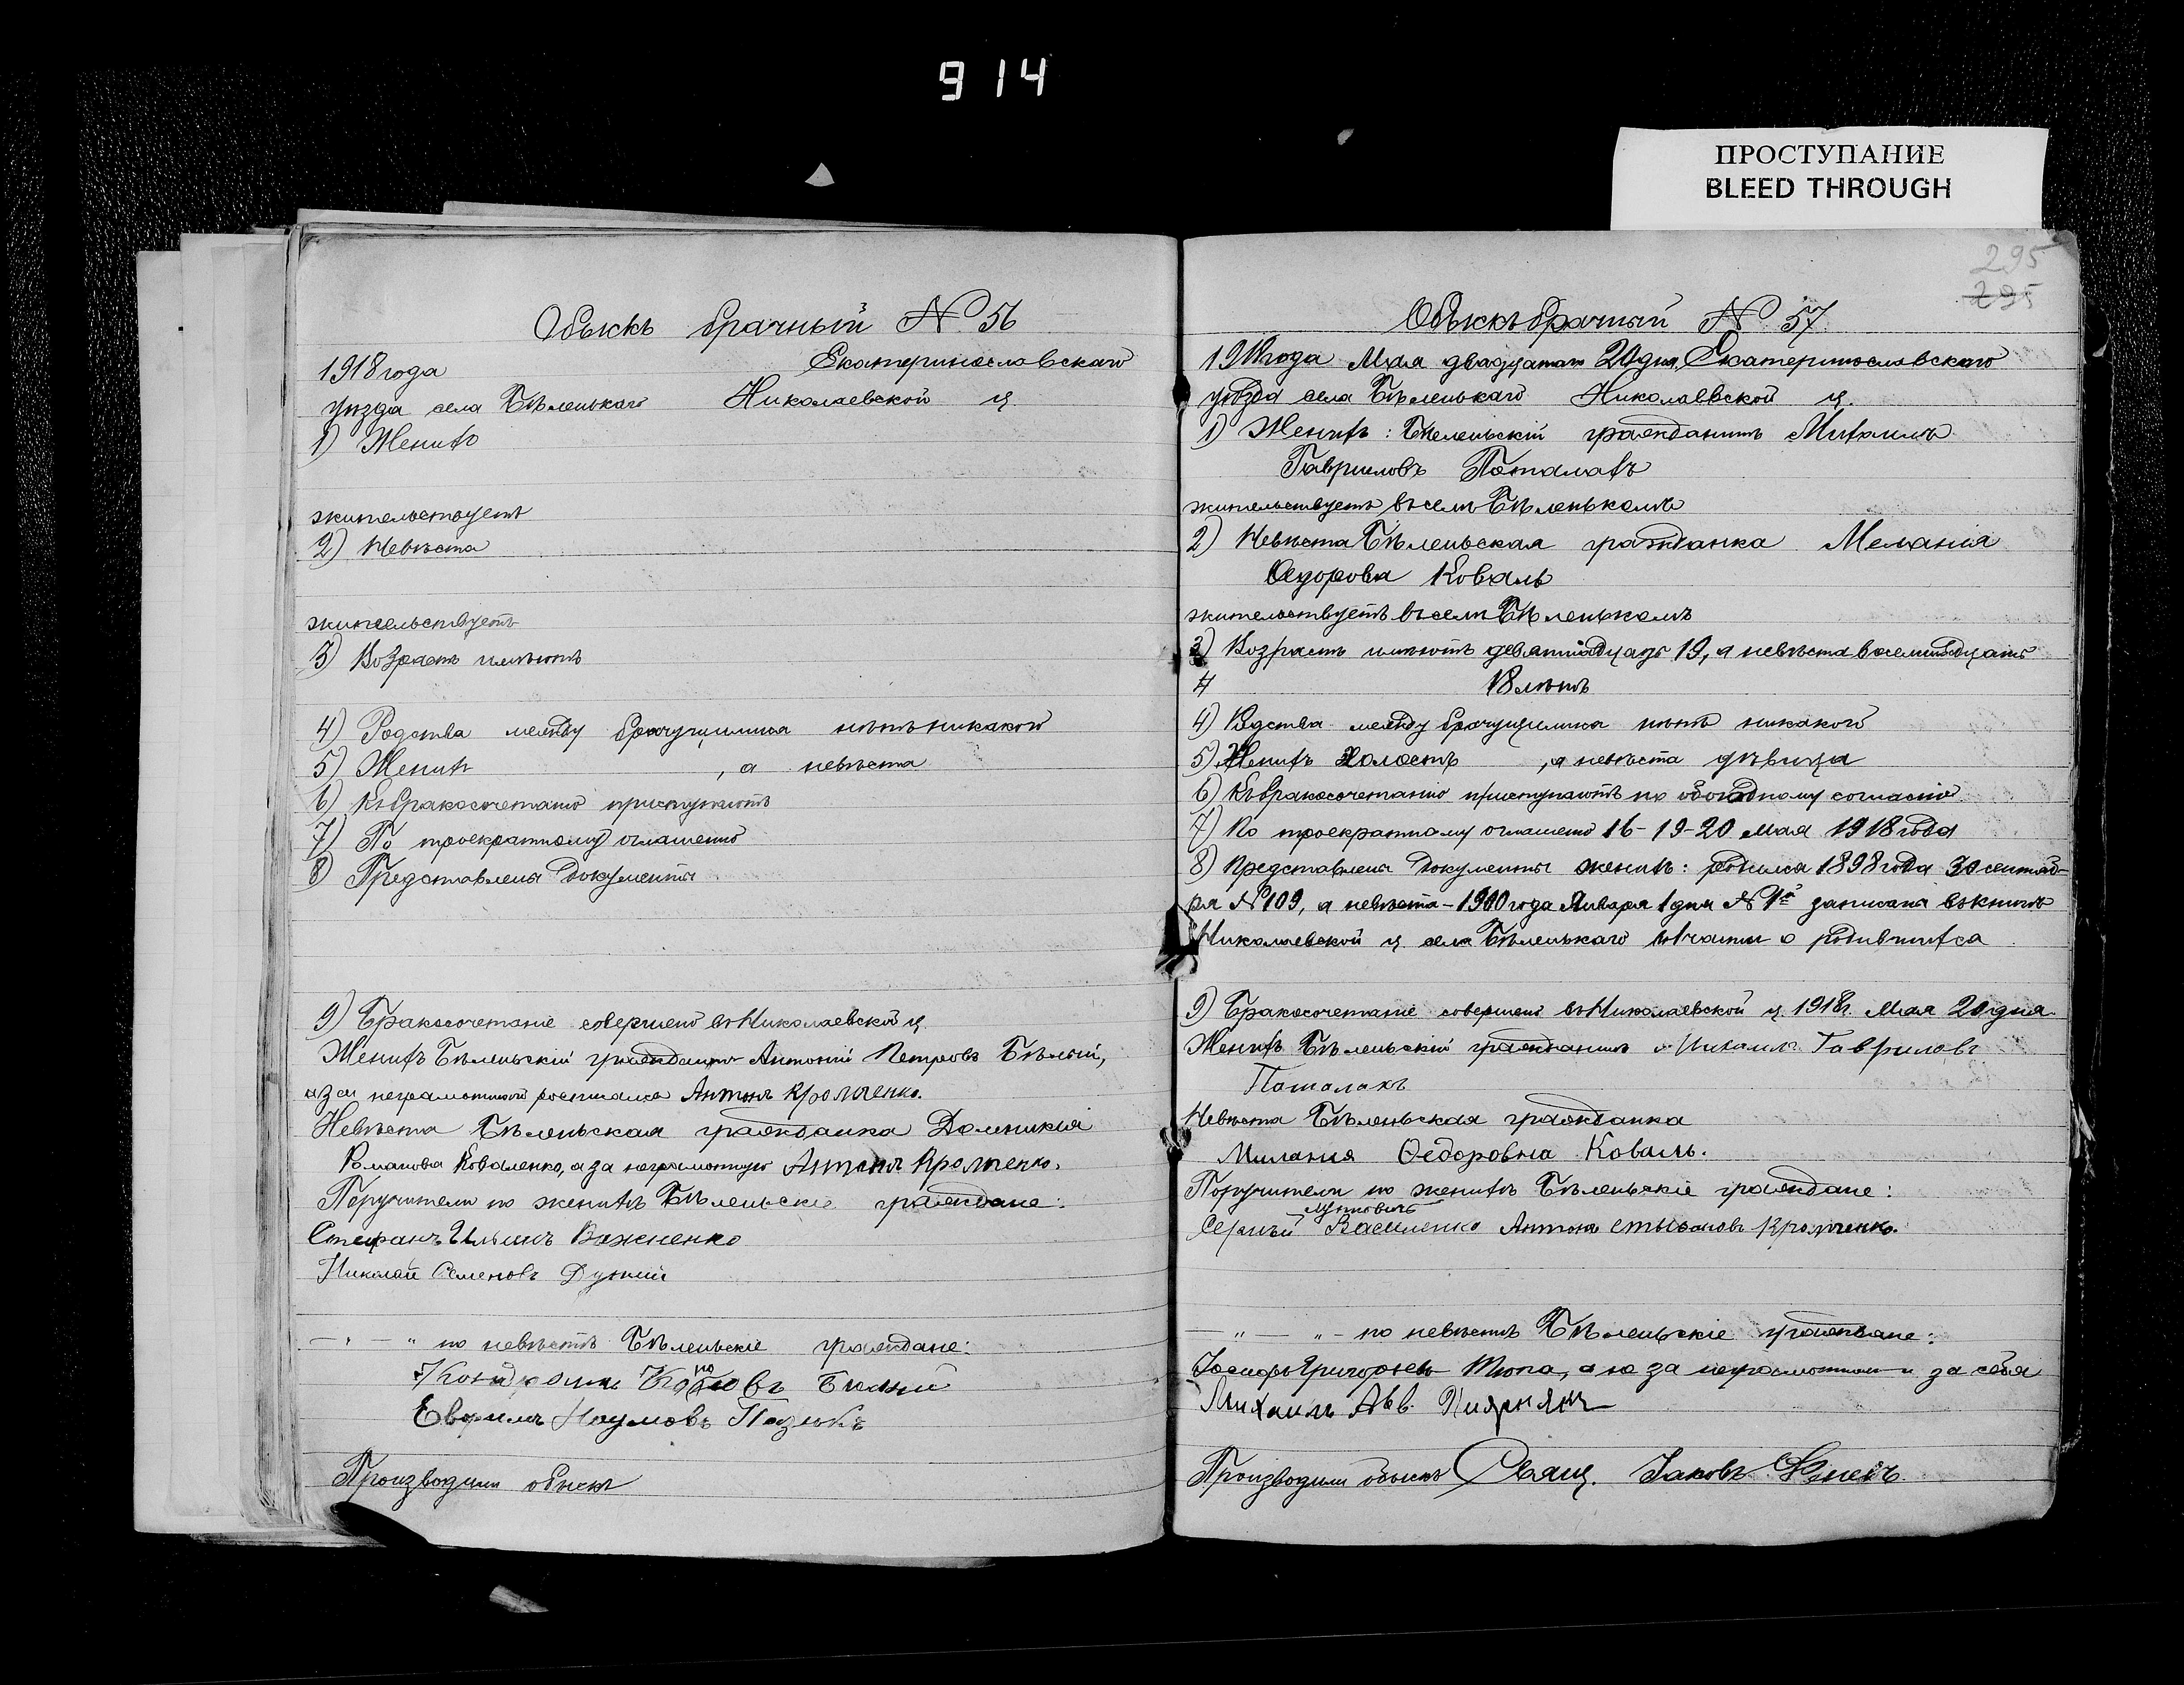 914
ПРОСТУПАНИЕ
BLEED THROUGH
295
295
Обыскъ брачный № 56
1918 года Екатеринославскаго
уѣзда села Бѣленькаго Николаевской ц.
1) Женихъ
жительствуетъ
2) Невѣста
жительствуетъ
3) Возрастъ имѣютъ
4) Родства между брачущимися нѣтъ никакого
5) Женихъ , а невѣста
6) Къ бракосочетанію приступаютъ
7) По троекратному оглашенію
8) Представлены документы
9) Бракосочетаніе совершено въ Николаевской ц.
Женихъ Бѣленьскій гражданинъ Антоній Петровъ Бѣлый,
а за неграмотного росписался Антонъ
Невѣста Бѣленьская гражданка Доминикія
Романова Коваленко, а за неграмотную Антонъ
Поручители по женихѣ Бѣленьскіе граждане:
Стефанъ Ильинъ Важненко
Николай Семеновъ
— " — " по невѣстѣ Бѣленьскіе граждане:
Кондратъ
Наумовъ
Производили обыскъ
Обыскъ брачный № 57
1918 года Мая двадцатаго 20 дня, Екатеринославскаго
уѣзда села Бѣленькаго Николаевской ц.
1) Женихъ: Бѣленьскій гражданинъ Михаилъ
Гавриловъ Поталахъ
жительствуетъ въ селѣ Бѣленькомъ
2) Невѣста Бѣленьская гражданка Меланія
Ѳедорова Коваль
жительствуетъ въ селѣ Бѣленькомъ
3) Возрастъ имѣютъ девятнадцать 19, а невѣста восемнадцать
18 лѣтъ
4) Родства между брачущимися нѣтъ никакого
5) Женихъ холостъ , а невѣста дѣвица
6) Къ бракосочетанію приступаютъ по обоюдному согласію
7) По троекратному оглашенію 16-19-20 Мая 1918 года
8) Представлены документы женихъ: родился 1898 года 30 сентяб-
ря № 109, а невѣста - 1900 года Января 1 дня № 1й записана въ книгѣ
Николаевской ц. села Бѣленькаго въ I части о родившихся
9) Бракосочетаніе совершено въ Николаевской ц. 1918 г. Мая 20 дня
Женихъ Бѣленьскій гражданинъ Михаилъ Гавриловъ
Поталахъ
Невѣста Бѣленьская гражданка
Миланія Ѳедоровна Коваль.
Поручители по женихѣ Бѣленьскіе граждане:
Сергѣй Василенко Антонъ
— " — " - по невѣстѣ Бѣленьскіе граждане:
Іосифъ Григорьев Тюпа, а за неграмотного и за себя
Михаилъ
Производили обыскъ Свящ. Іаковъ